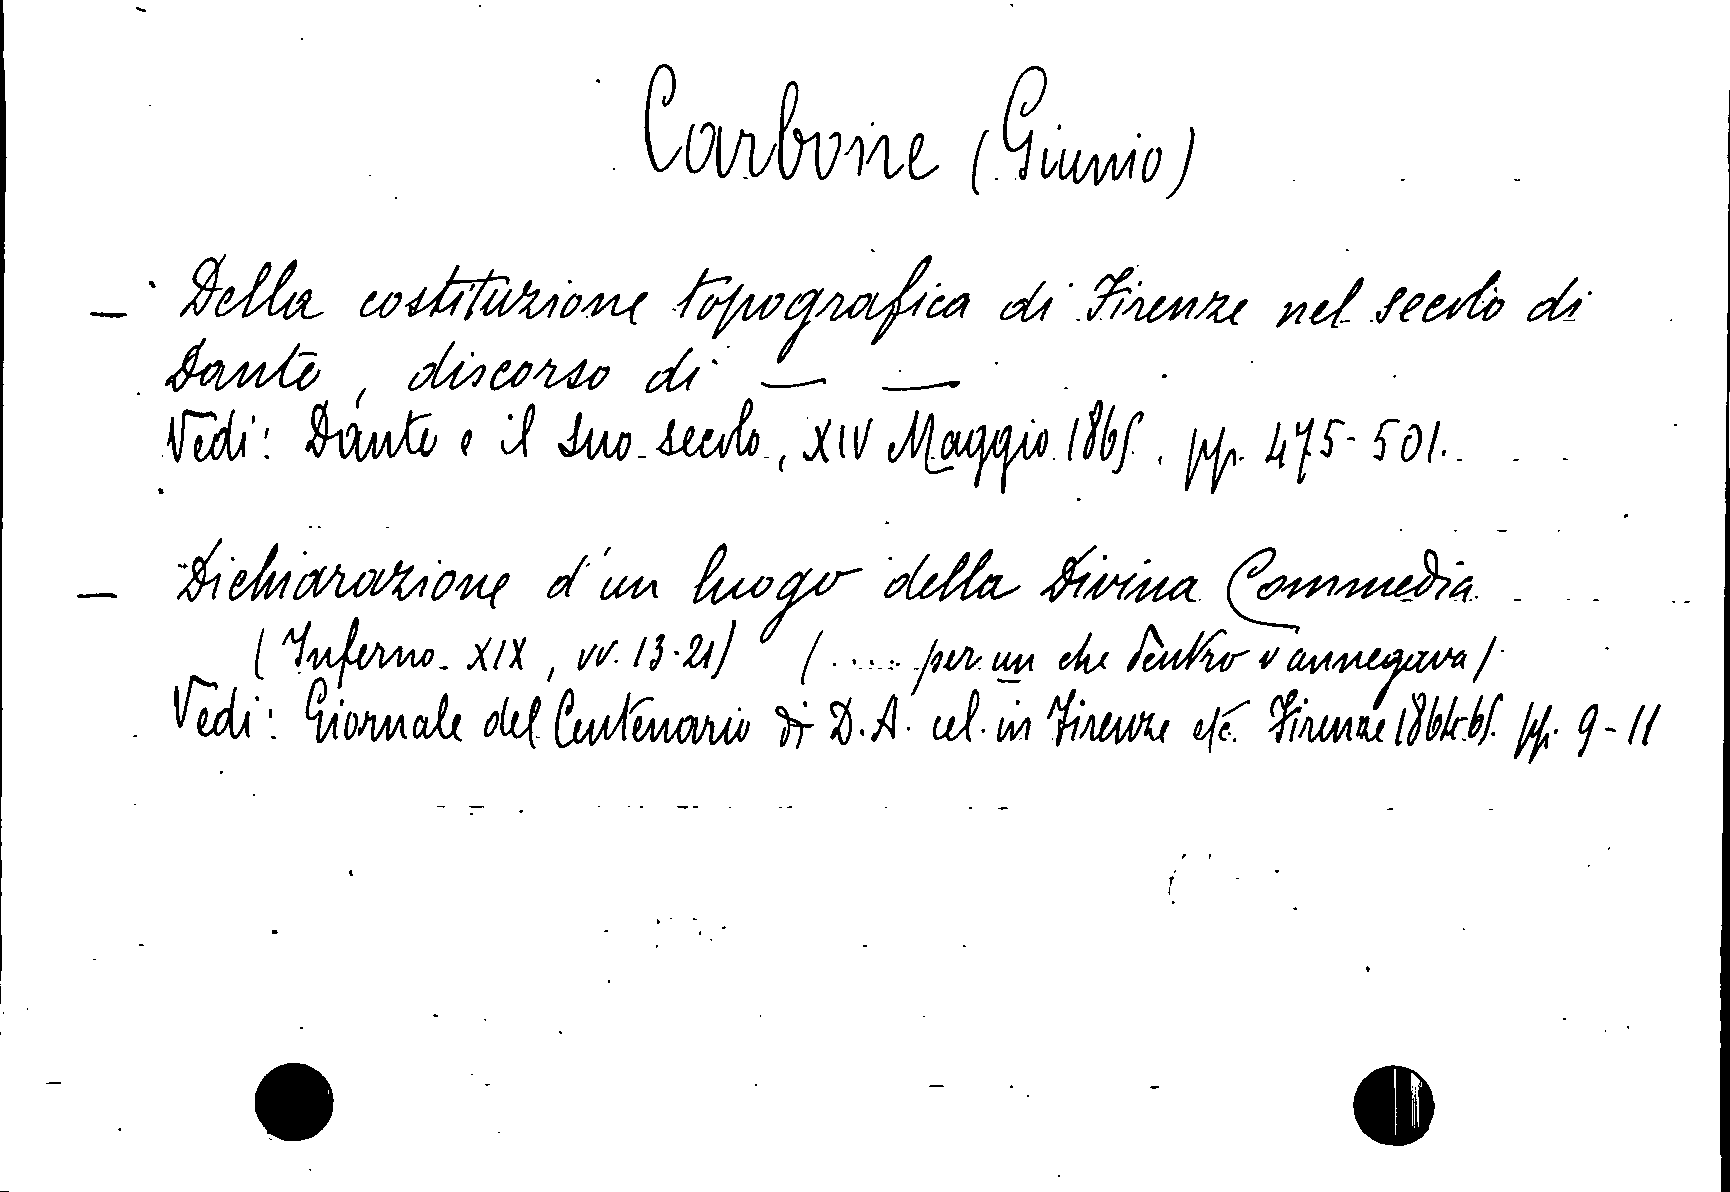 Carbone (Giunio)
— Della costituzione topografica di Firenze nel secolo di
Dante, discorso di — —
Vedi: Dante e il suo secolo, XIV Maggio 1865. pp. 475-501.
— Dichiarazione d'un luogo della Divina Commedia
(Inferno XIX, vv. 13-21) (..... per un che dentro v'annegava)
Vedi: Giornale del Centenario di D. A. cel. in Firenze etc. Firenze 1864-65. pp. 9-11